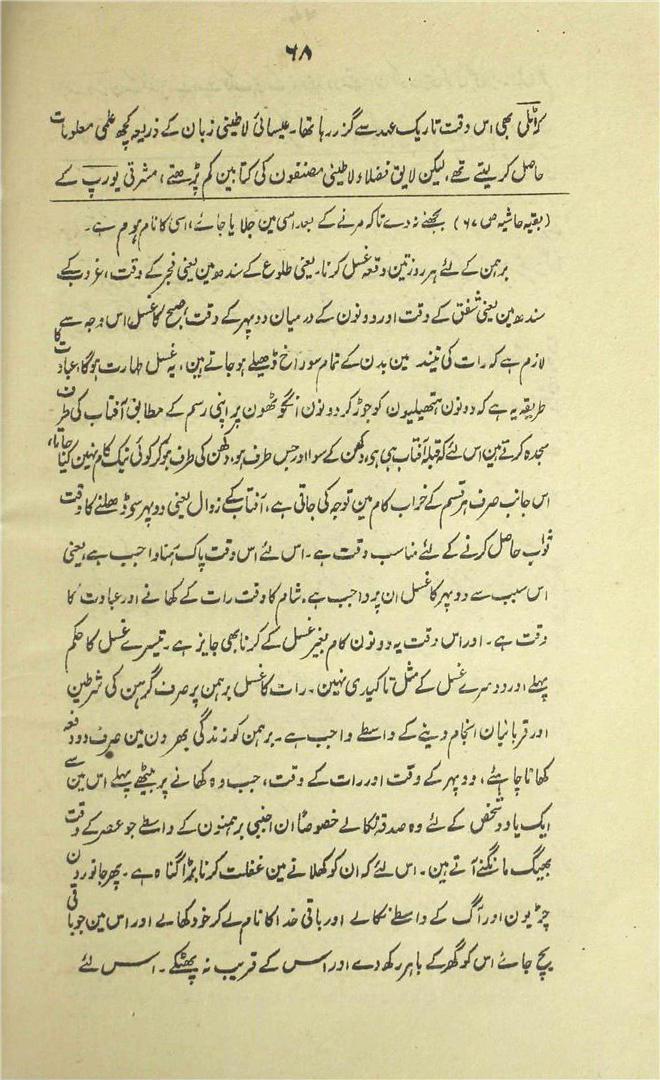 ۶۸
کہ اٹلی بھی اس وقت تاریک عہد سے گزر رہا تھا۔ عیسائی لاطینی زبان کے ذریعہ کچھ علمی معلومات
حاصل کر لیتے تھے، لیکن لایق فضلاء لاطینی مصنفون کی کتابین کم پڑھتے، مشرقی یورپ کے
(بقیہ حاشیہ ص ۶۷) بجھنے نہ دے تاکہ مرنے کے بعد اسی مین جلایا جائے، اسی کا نام ہوم ہے۔
برہمن کے لئے ہر روز تین دفعہ غسل کرنا۔ یعنی طلوع کے سندھ مین یعنی فجر کے وقت، غروب کے
سندھ مین یعنی شفق کے وقت اور دونون کے درمیان دوپہر کے وقت، صبح کا غسل اس وجہ سے
لازم ہے کہ رات کی نیند مین بدن کے تمام سوراخ ڈھیلے ہو جاتے ہین، یہ غسل طہارت ہوگا، عبادت کا
طریقہ یہ ہے کہ دونون ہتھیلیون کو جوڑ کر دونون انگوٹھون پر اپنی رسم کے مطابق آفتاب کی طرف
سجدہ کرتے ہین اس لئے کہ قبلہ آفتاب ہی ہے، دکھن کے سوا اور جس طرف ہو، دکھن کی طرف ہو کر کوئی نیک کام نہین کیا جاتا،
اس جانب صرف ہر قسم کے خراب کام مین توجہ کی جاتی ہے، آفتاب کے زوال یعنی دوپہر سے ڈھلنے کا وقت
ثواب حاصل کرنے کے لئے مناسب وقت ہے۔ اس لئے اس وقت پاک رہنا واجب ہے، یعنی
اس سبب سے دوپہر کا غسل ان پر واجب ہے، شام کا وقت رات کے کھانے اور عبادت کا
وقت ہے۔ اور اس وقت یہ دونون کام بغیر غسل کے کرنا بھی جایز ہے۔ تیسرے غسل کا حکم
پہلے اور دوسرے غسل کے مثل تاکیدی نہین۔ رات کا غسل برہمن پر صرف گرہن کی شرطین
اور قربانیان انجام دینے کے واسطے واجب ہے۔ برہمن کو زندگی بھر دن مین صرف دو دفعہ
کھانا چاہئے، دوپہر کے وقت اور رات کے وقت، جب وہ کھانے پر بیٹھے پہلے اس مین سے
ایک یا دو شخص کے لئے وہ صدقہ نکالے خصوصاً ان اجنبی برہمنون کے واسطے جو عصر کے وقت
بھیگ مانگنے آتے ہین۔ اس لئے کہ ان کو کھلانے مین غفلت کرنا بڑا گناہ ہے۔ پھر جانورون
چڑیون اور آگ کے واسطے نکالے اور باقی خدا کا نام لے کر خود کھالے اور اس مین جو باقی
بچ جائے اس کو گھر کے باہر رکھ دے اور اس کے قریب نہ پھٹکے۔ اس لئے